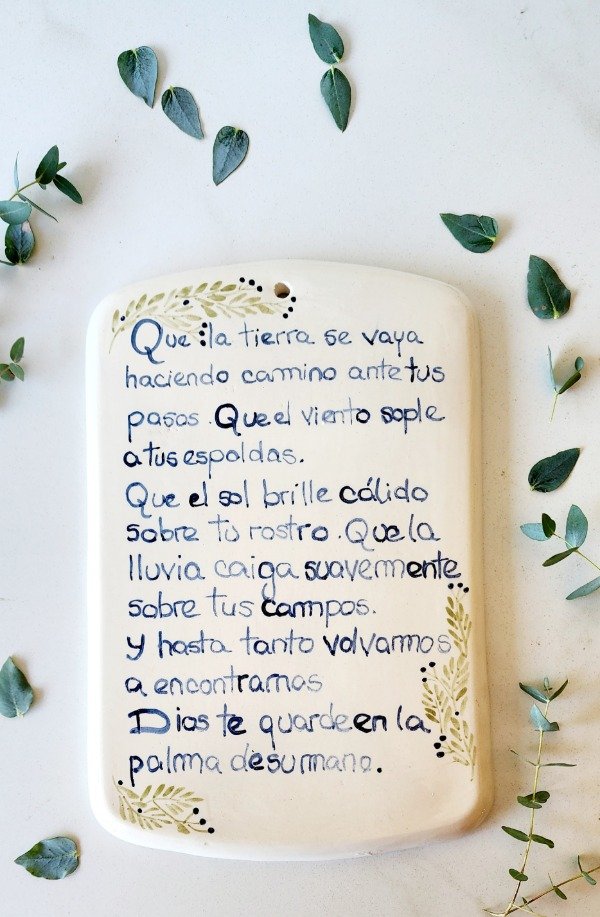 Que la tierra se vaya
haciendo camino ante tus
pasos. Que el viento sople
a tus espaldas.
Que el sol brille cálido
sobre tu rostro. Que la
lluvia caiga suavemente
sobre tus campos.
y hasta tanto volvamos
a encontrarnos
Dios te guarde en la
palma de su mano.